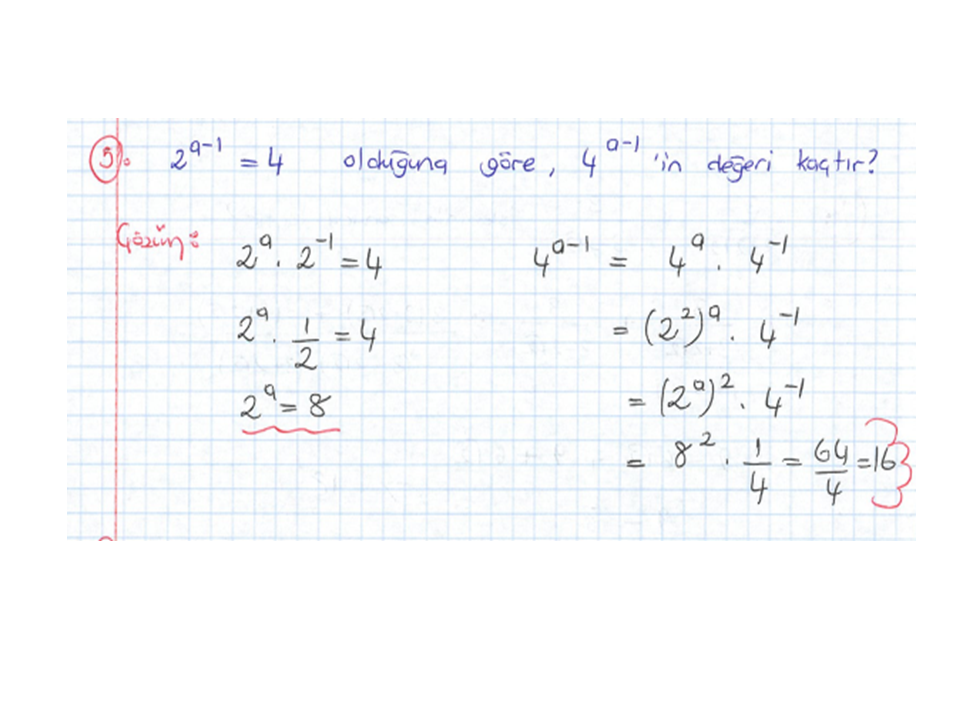 5. 2^{a-1} = 4 olduğuna göre, 4^{a-1}'in değeri kaçtır?
Çözüm:
2^a . 2^{-1} = 4
2^a . 1/2 = 4
2^a = 8
4^{a-1} = 4^a . 4^{-1}
= (2^2)^a . 4^{-1}
= (2^a)^2 . 4^{-1}
= 8^2 . 1/4 = 64/4 = 16